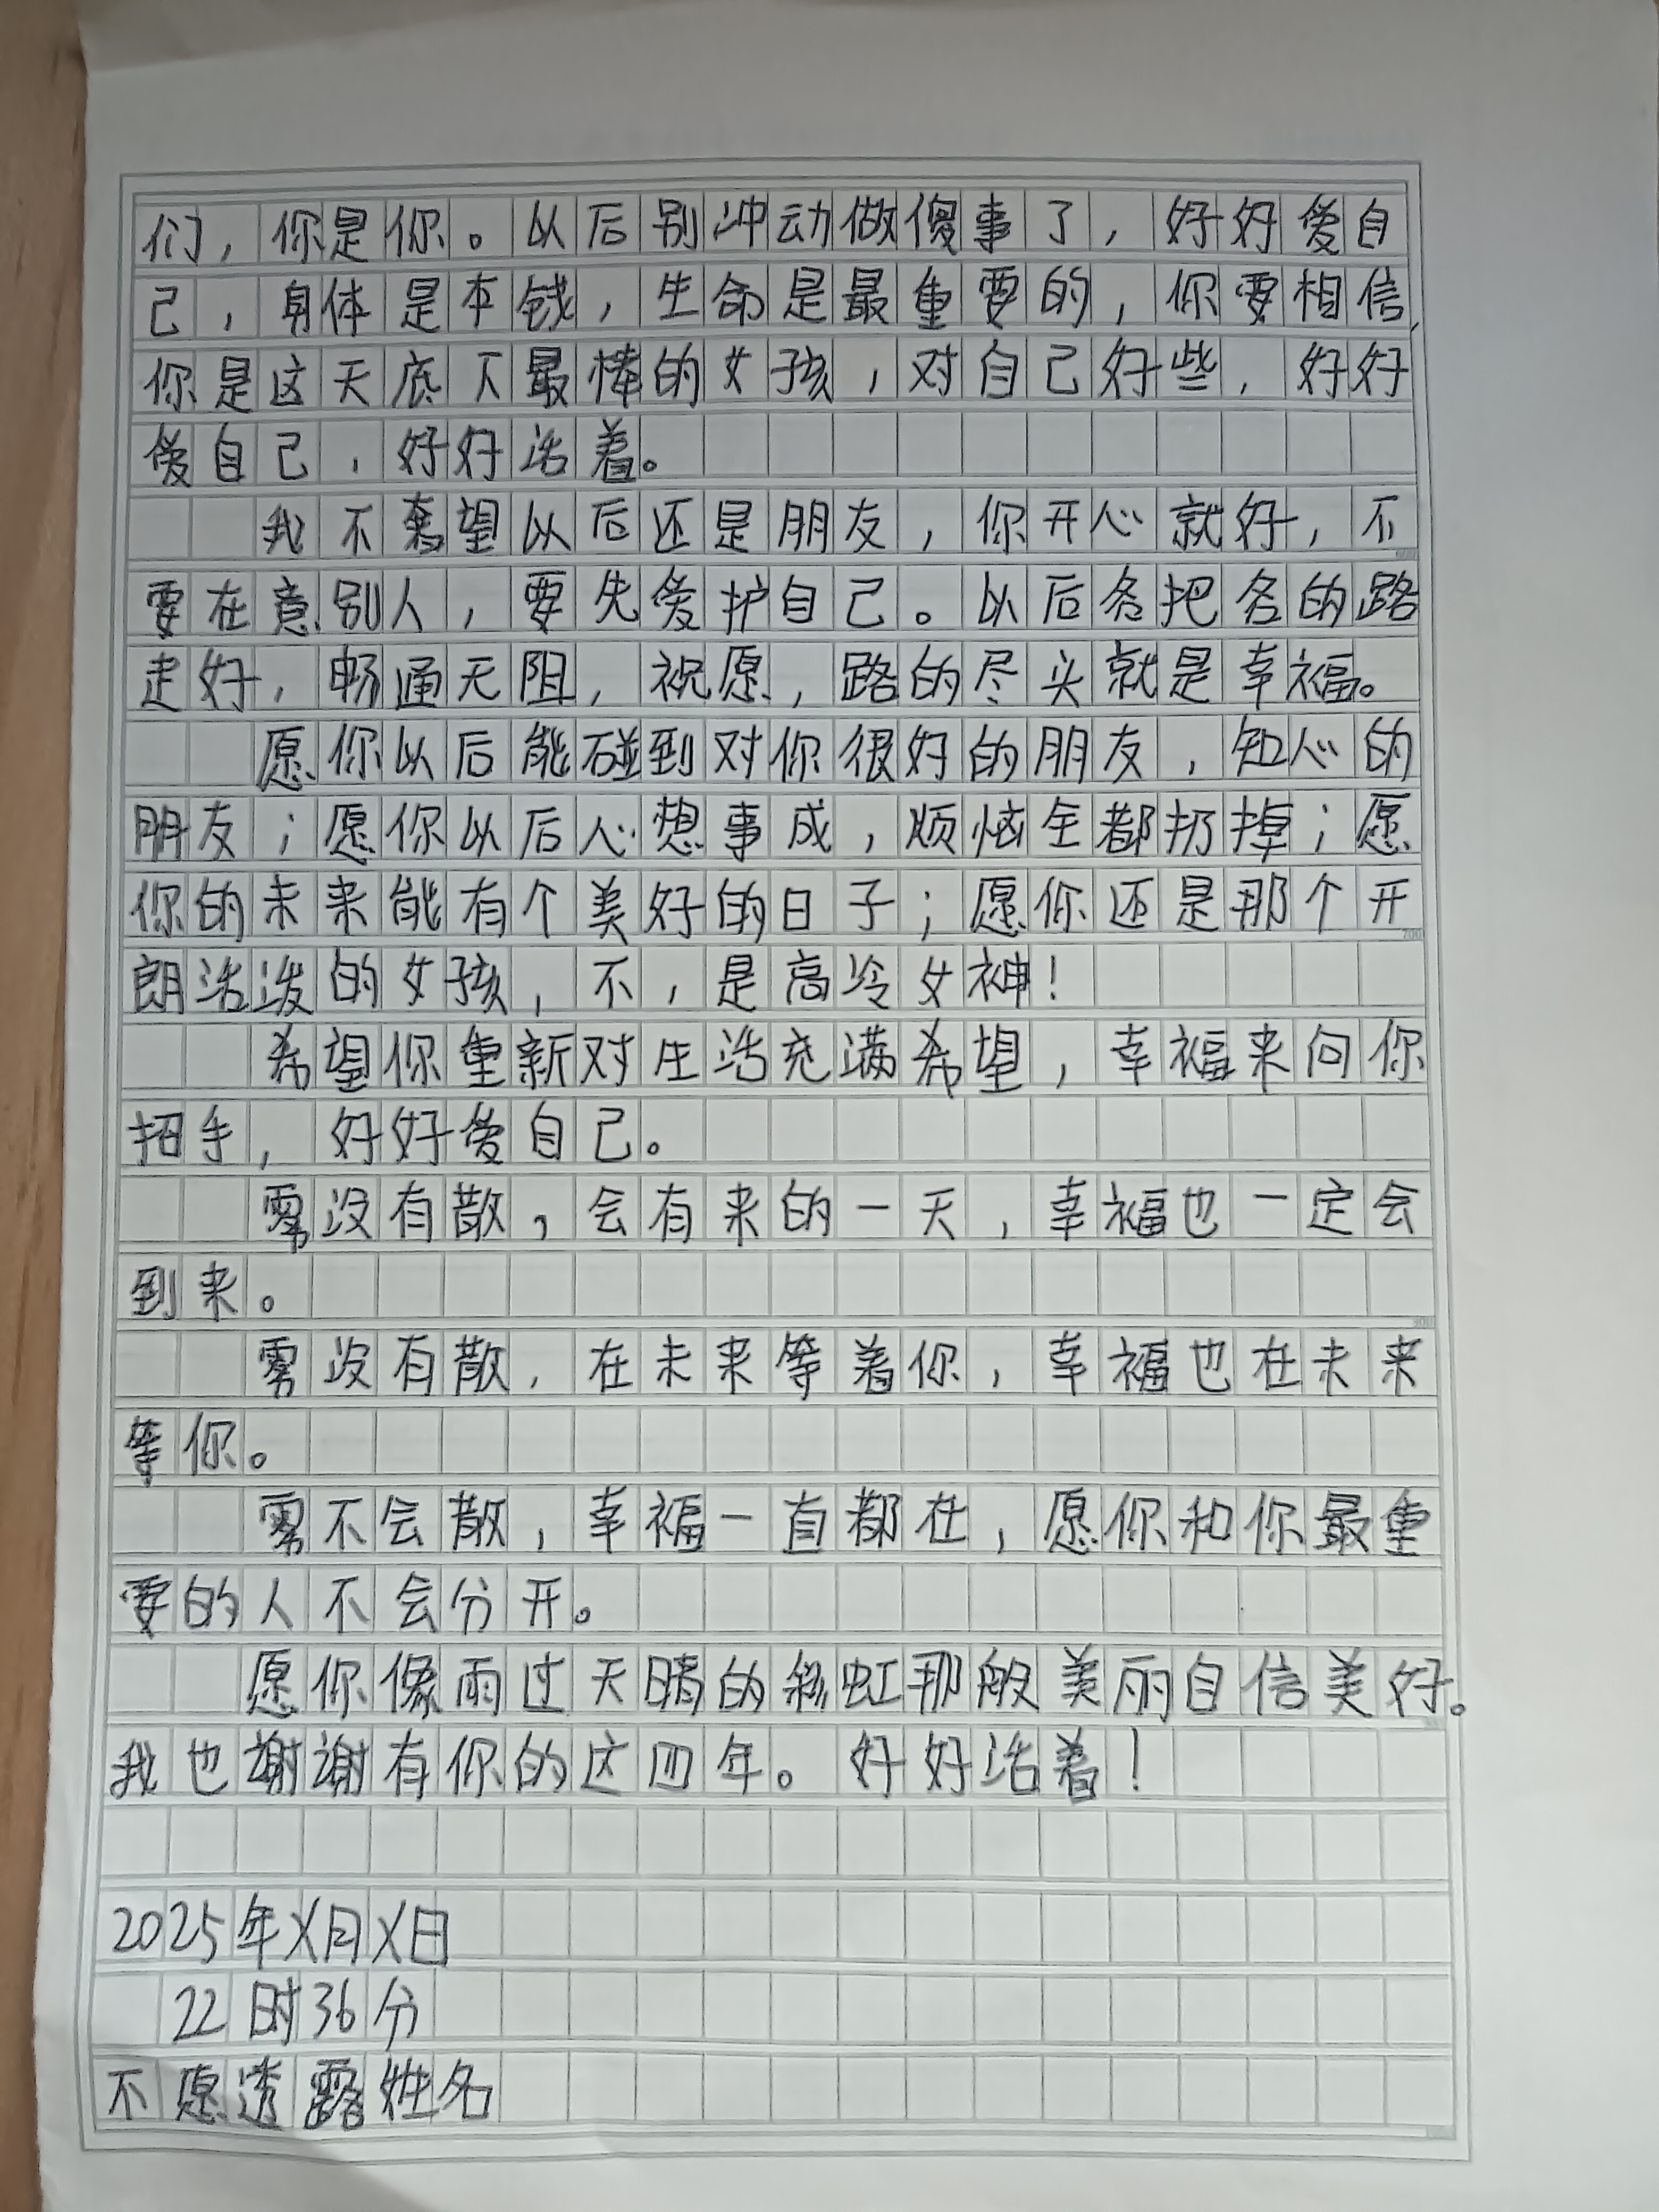 们，你是你。以后别冲动做傻事了，好好爱自
己，身体是本钱，生命是最重要的，你要相信，
你是这天底下最棒的女孩，对自己好些，好好
爱自己，好好活着。
我不奢望以后还是朋友，你开心就好，不
要在意别人，要先爱护自己。以后各把各的路
走好，畅通无阻，祝愿，路的尽头就是幸福。
愿你以后能碰到对你很好的朋友，知心的
朋友；愿你以后心想事成，烦恼全都扔掉；愿
你的未来能有个美好的日子；愿你还是那个开
朗活泼的女孩，不，是高冷女神！
希望你重新对生活充满希望，幸福来向你
招手，好好爱自己。
雾没有散，会有来的一天，幸福也一定会
到来。
雾没有散，在未来等着你，幸福也在未来
等你。
雾不会散，幸福一直都在，愿你和你最重
要的人不会分开。
愿你像雨过天晴的彩虹那般美丽自信美好。
我也谢谢有你的这四年。好好活着！
2025年X月X日
22时36分
不愿透露姓名